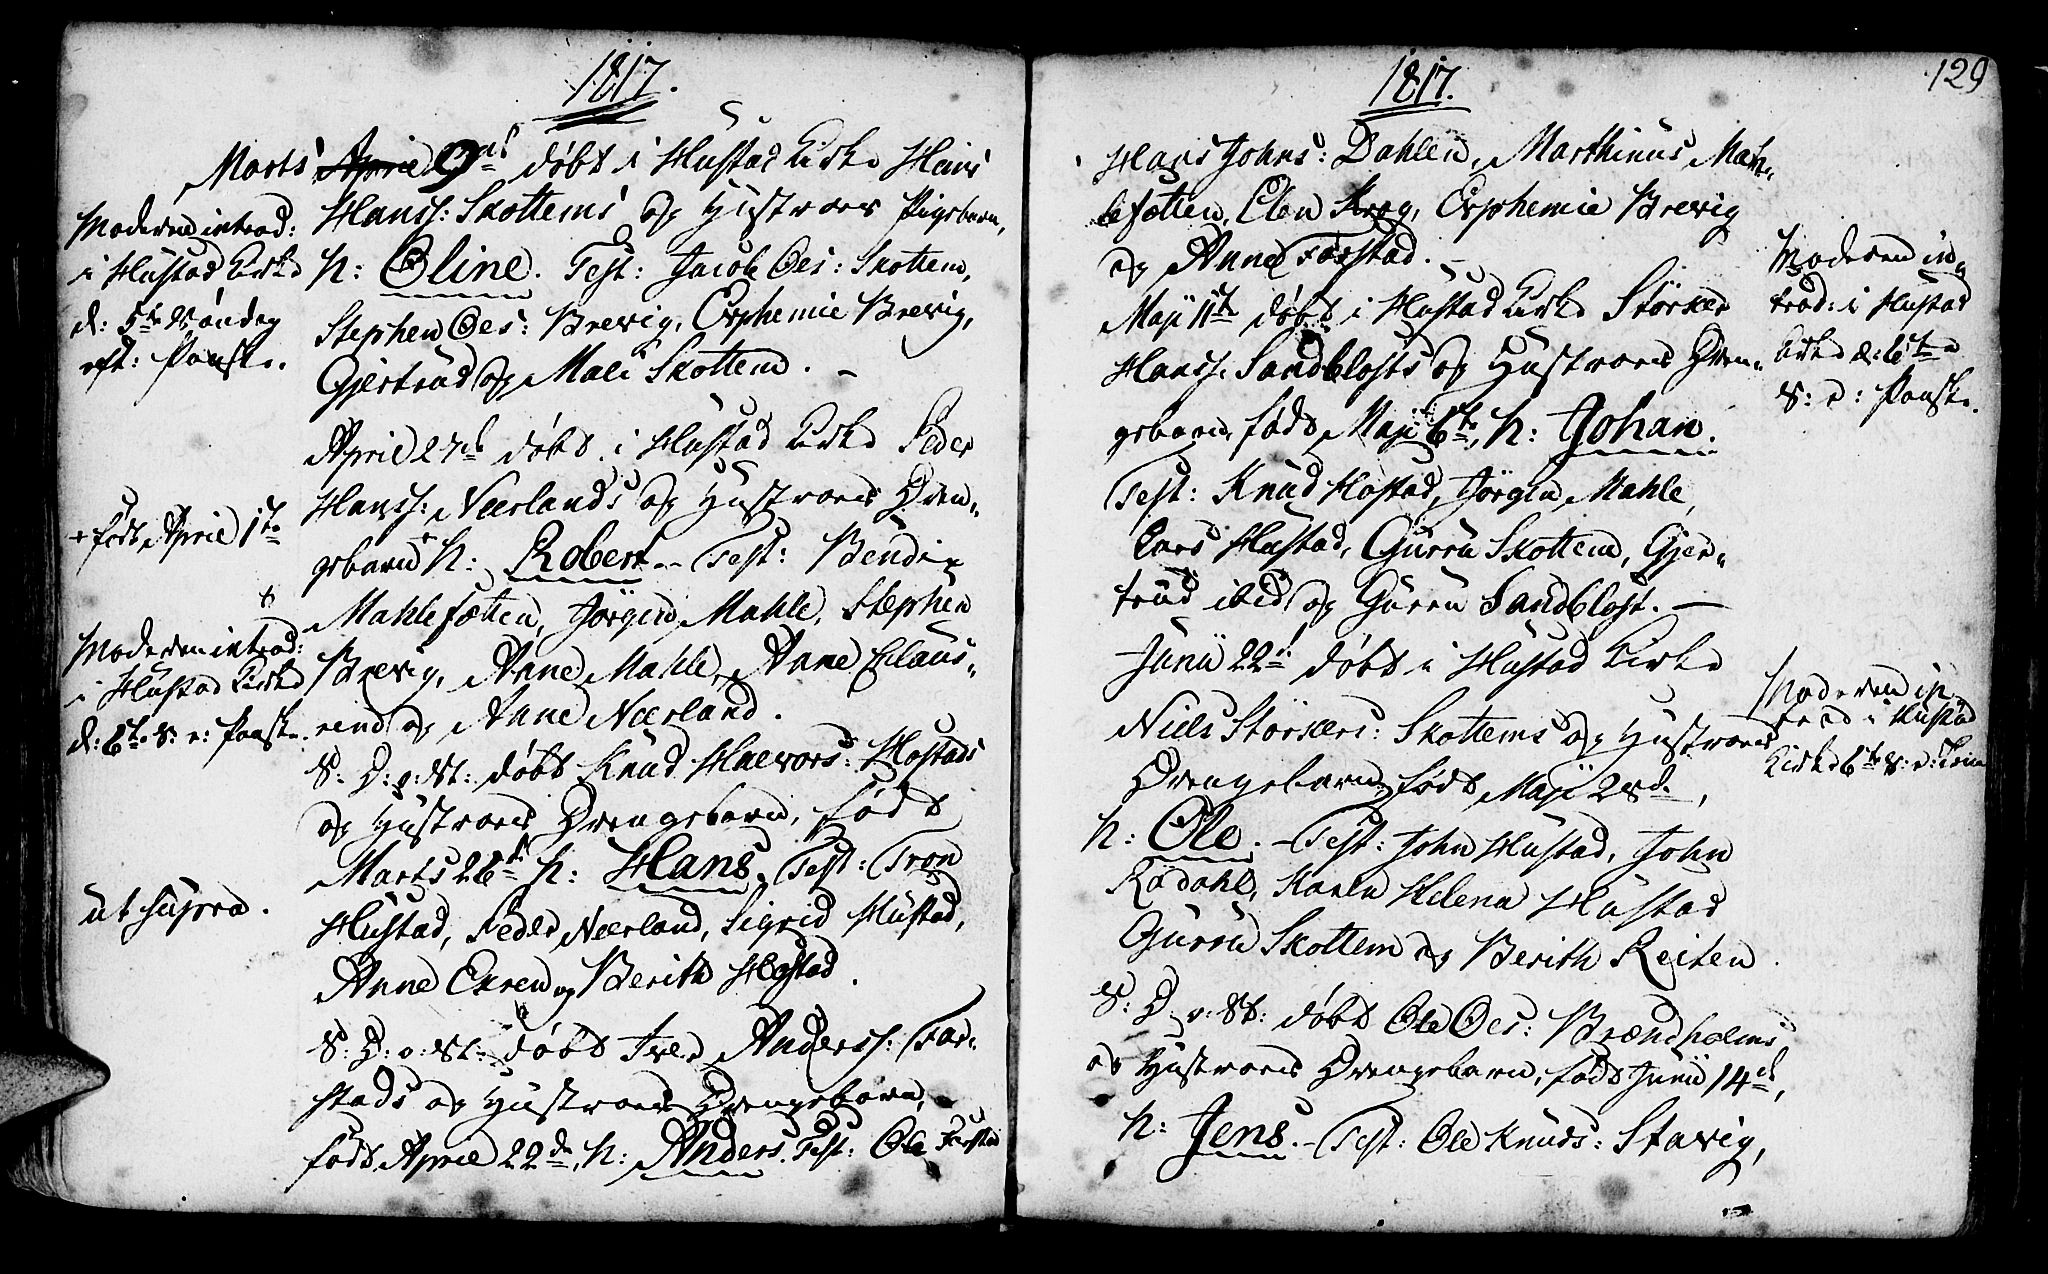 1817.
Marts April 9de døbt i Hustad Kirke Hans
Hanss: Skottems og Hustroes Pigebarn,
N: Oline. Test: Jacob Oes: Skottem,
Stephen Oes: Brevig, Euphemie Brevig,
Gjertrud og Mali Skottem. –
Moderen introd:
i Hustad Kirke
d: 5te Søndag
eft: Paaske.
April 27de døbt i Hustad Kirke Peder
Hanss: Neerlands og Hustroes Dren-
gebarn + N: Robert – Test: Bendix
Mahlefætten, Jörgen Mahle, Stephen
Brevig, Anne Mahle, Anne Claus-
eng og Anne Neerland.
+ født April 1te
+
Moderen introd:
i Hustad Kirke
d: 6te S: e: Paaske.
S: D: o: St: døbt Knud Halvors: Hostads
og Hustroes Drengebarn, født
Marts 26de N: Hans. Test: Tron
Hustad, Peder Neerland, Sigrid Hustad,
Anne Exren og Berith Hostad.
ut supra.
S: D: o: St: døbt Iver Anderss: Far-
stads og Hustroes Drengebarn,
født April 22de, N: Anders. Test: Ole Farstad
1817.
129
Hans Johns: Dahlen, Marthinus Mah-
lefætten, Elen Krog, Euphemie Brevig
og Anne Farstad. –
Maji 11te døbt i Hustad Kirke Störker
Hanss: Sandblosts og Hustroes Dren-
gebarn, født Maji 6te, N: Johan.
Test: Knud Hostad, Jörgen Mahle,
Lars Hustad, Gurru Skottem, Gjer-
trud ibid og Gurru Sandblost. –
Moderen in-
trod: i Hustad
Kirke d: 6te
S: e: Paaske.
Junii 22de døbt i Hustad Kirke
Niels Störkers: Skottems og Hustroes
Drengebarn, født Maji 28de,
N: Ole. – Test: John Hustad, John
Rödahl, Karen Helena Hustad
Gurru Skottem og Berith Reiten.
Moderen in-
trod i Hustad
Kirke 6te S: e: Trin
S: D: o: St: døbt Ole Oes: Brændholms
og Hustroes Drengebarn, født Junii 14de,
N: Jens. – Test: Ole Knuds: Stavig,